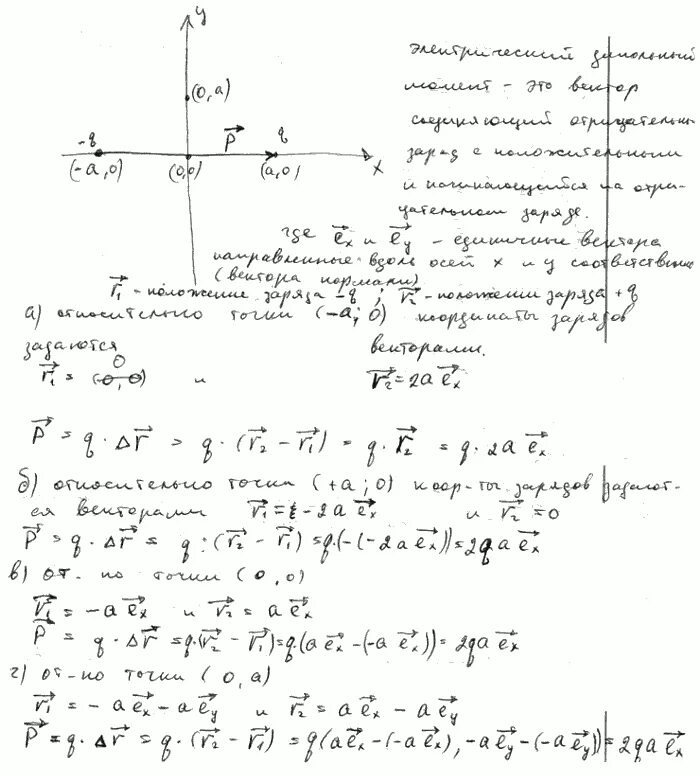 y
(0,a)
-q
q
P⃗
(-a,0)
(0,0)
(a,0)
x
Электрический дипольный
момент - это вектор
соединяющий отрицательный
заряд с положительным
и начинающийся на отри-
цательном заряде.
где e⃗x и e⃗y - единичные вектора
направленные вдоль осей x и y соответственно
(вектора нормали)
r⃗1 - положение заряда -q ; r⃗2 - положении заряда +q
а) относительно точки (-a; 0) координаты зарядов
задаются векторами.
r⃗1 = 0 и r⃗2 = 2a e⃗x
P⃗ = q · Δr⃗ = q · (r⃗2 - r⃗1) = q · r⃗2 = q · 2a e⃗x
б) относительно точки (+a; 0) коор-ты зарядов задают-
ся векторами r⃗1 = -2a e⃗x и r⃗2 = 0
P⃗ = q · Δr⃗ = q · (r⃗2 - r⃗1) = q·(-(-2a e⃗x)) = 2qa e⃗x
в) от.-но точки (0,0)
r⃗1 = -a e⃗x и r⃗2 = a e⃗x
P⃗ = q · Δr⃗ = q·(r⃗2 - r⃗1) = q·(a e⃗x - (-a e⃗x)) = 2qa e⃗x
г) от-но точки (0, a)
r⃗1 = -a e⃗x - a e⃗y и r⃗2 = a e⃗x - a e⃗y
P⃗ = q · Δr⃗ = q · (r⃗2 - r⃗1) = q(a e⃗x - (-a e⃗x), -a e⃗y - (-a e⃗y)) = 2qa e⃗x